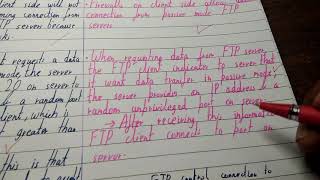 client side will not - Firewalls on client side allow
connection from connection from passive mode FTP
FTP server because servers
request a data When requesting data from FTP server,
mode the server the FTP client indicates to server that
20 on server to it want data transfer in passive mode,
a random port the server provides an IP address & a
client, which is random unprivileged port on server
greater than → After receiving this information
FTP client connects to port on
this is that server.
FTP control connection to